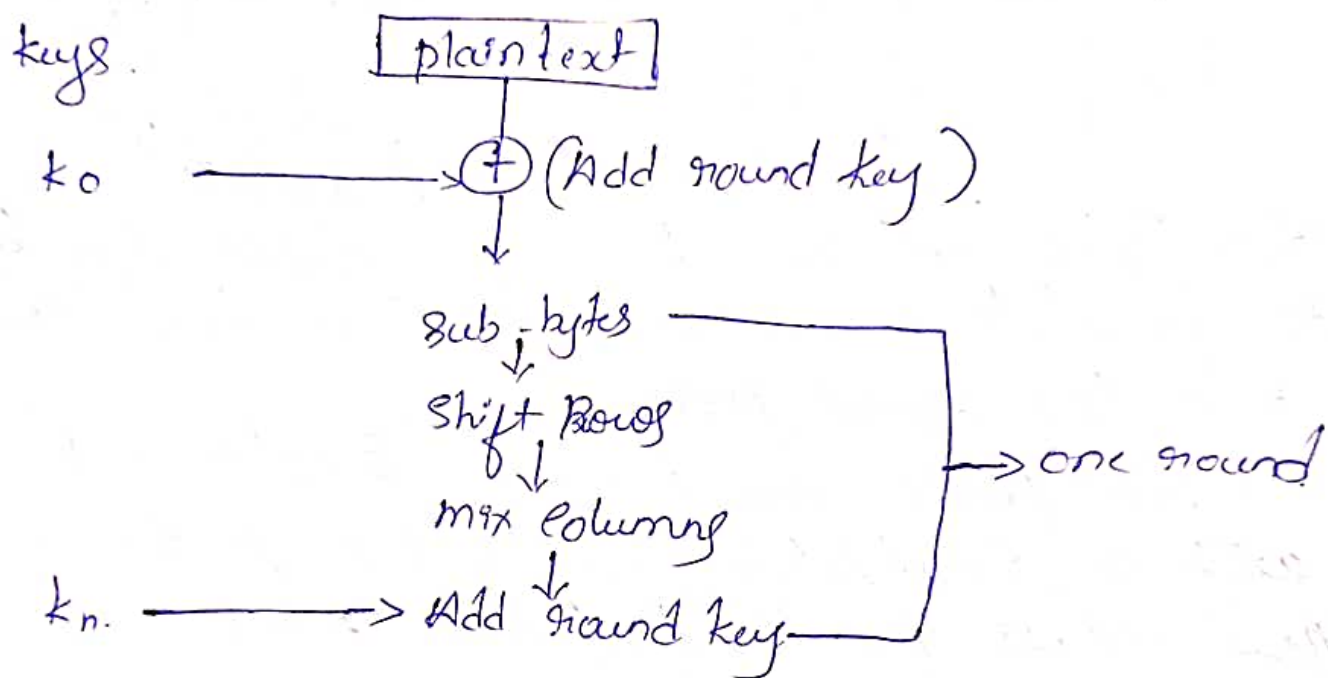 keys.
plaintext
k0 + (Add round key)
sub-bytes
Shift Rows
mix columns
one round
kn. Add round key